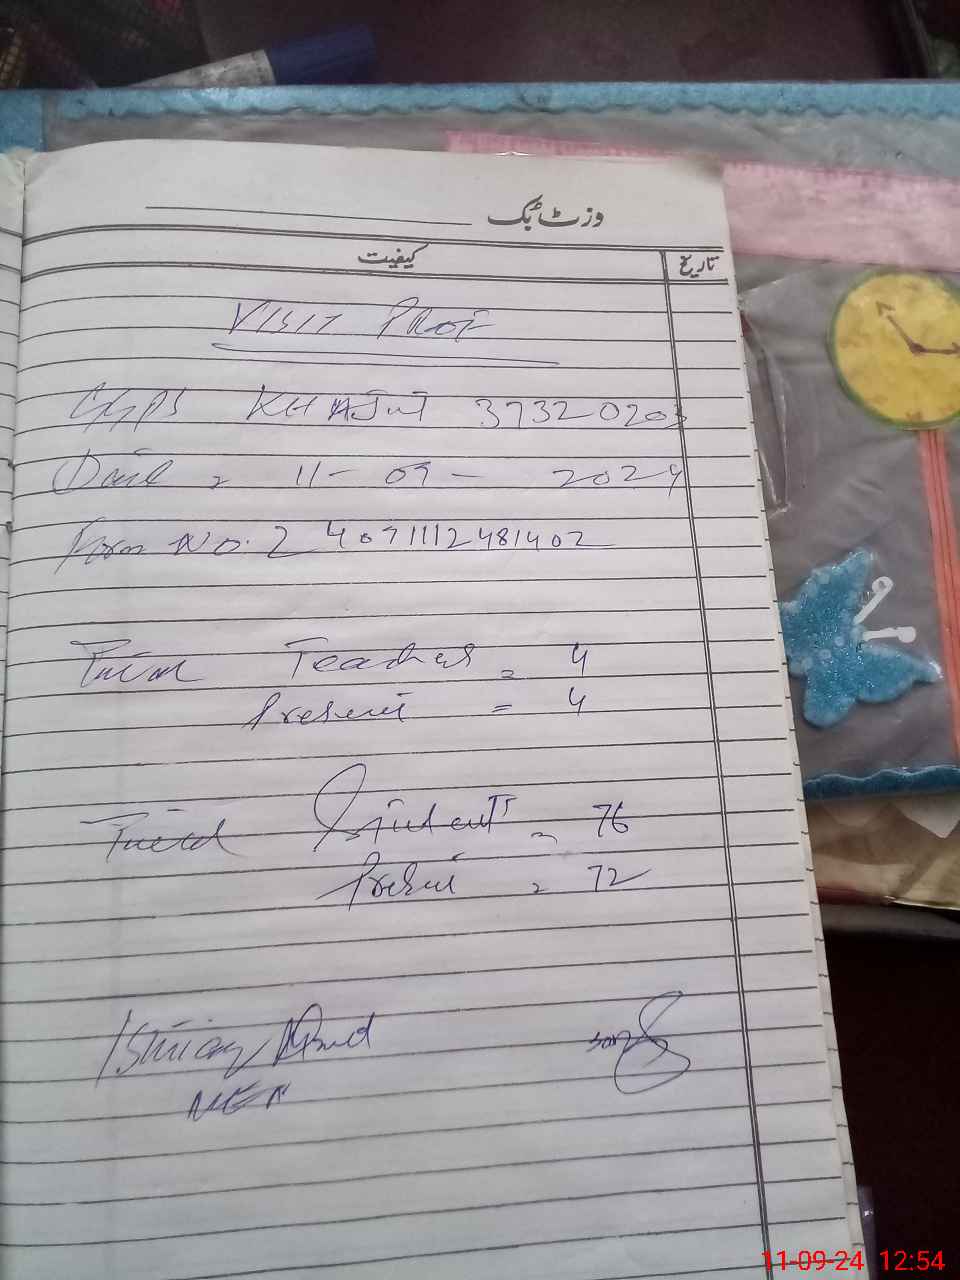 وزٹ بک
کیفیت
تاریخ
VISIT PROF
GGPS KHAJUT 37320203
Date = 11-09-2024
Form No. 24091112481402
Total Teacher = 4
Present = 4
Total Students = 76
Present = 72
Ahmad
MEA
11-09-24 12:54